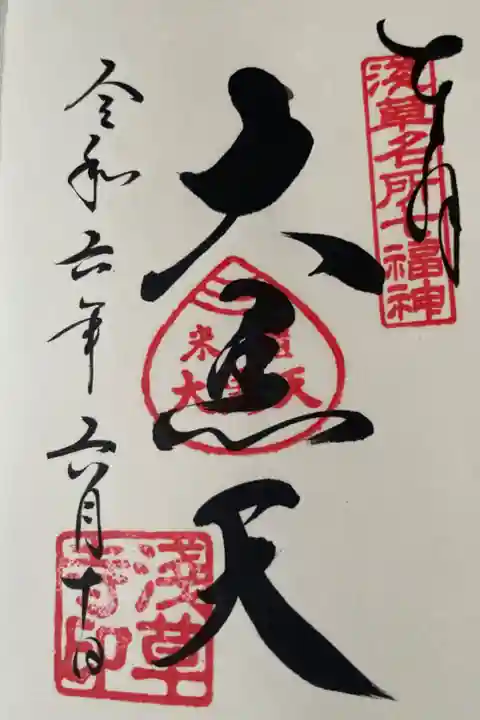 奉拝
浅草名所七福神
大黒天
米
大黒天
令和六年六月十日
浅草
寺印